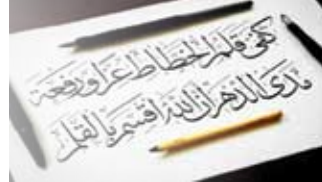 كفى قلم الخطاط عزا ورفعة
مدى الدهر أن الله أقسم بالقلم